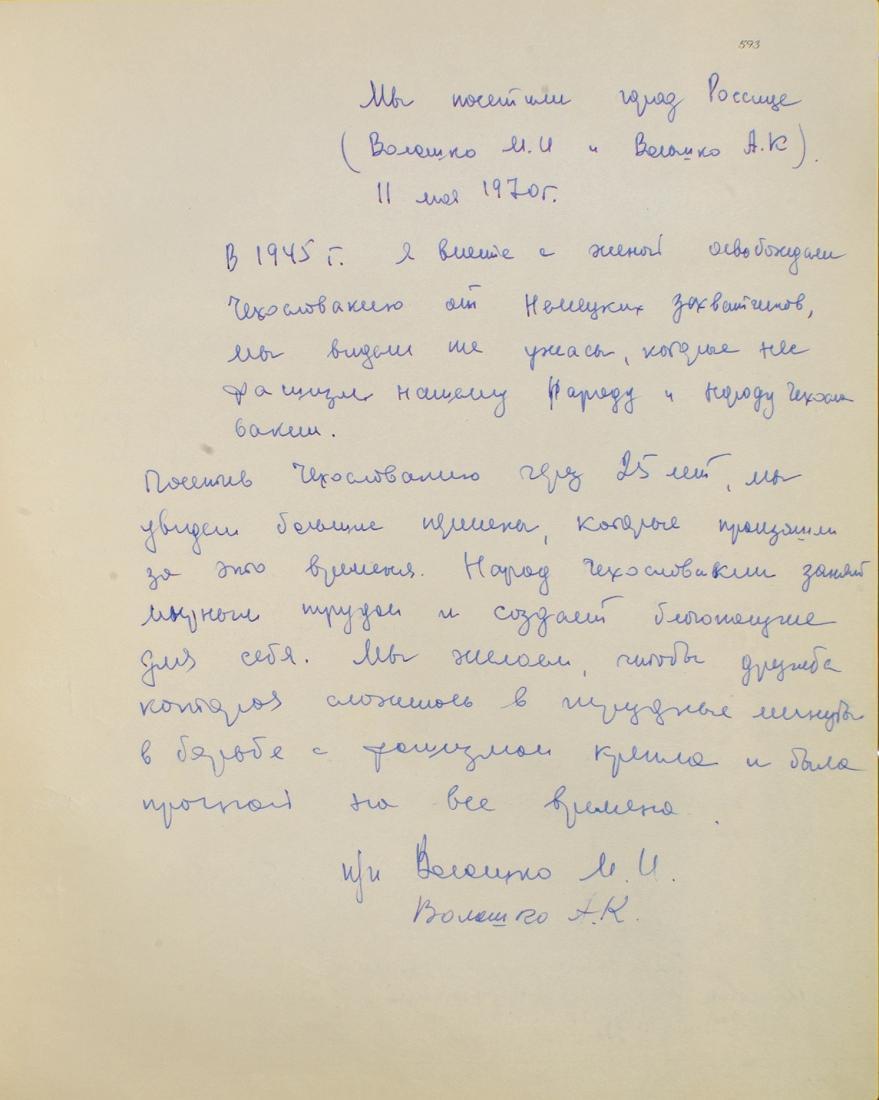 593
Мы посетили город Россице
(Волошко М.И и Волошко А.К).
11 мая 1970г.
В 1945 г. я вместе с женой освобождали
Чехословакию от Немецких захватчиков,
мы видели те ужасы, которые нес
фашизм нашему Народу и народу Чехосло
вакии.
Посетив Чехословакию через 25 лет, мы
увидели большие перемены, которые произошли
за это время. Народ Чехословакии занят
мирным трудом и создает благополучие
для себя. Мы желаем, чтобы дружба
которая сложилась в трудные минуты
в борьбе с фашизмом крепла и была
прочной на все времена.
п/п Волошко М.И.
Волошко А.К.